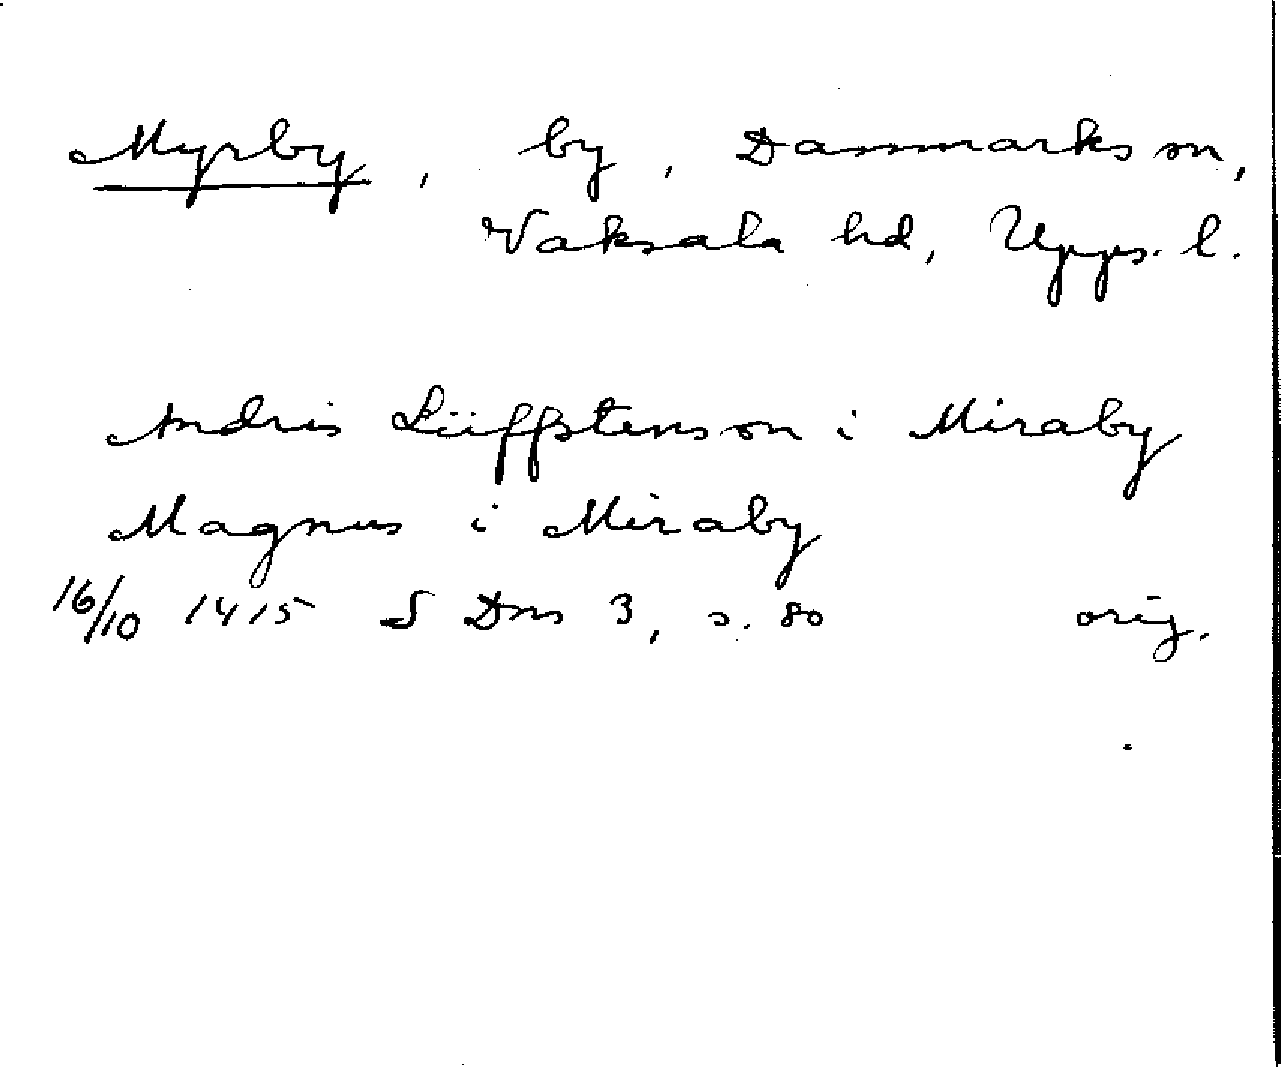 Myrby, by, Danmarks sn,
Vaksala hd, Upps. l.
Andris Lüffstensson i Miraby
Magnus i Miraby
16/10 1415 S Dns 3, s. 80 orig.